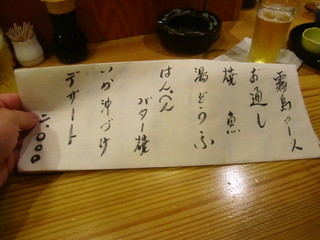 霧島コース
お通し
焼魚
湯どうふ
はんぺん
バター焼
いか沖づけ
デザート
二.〇〇〇